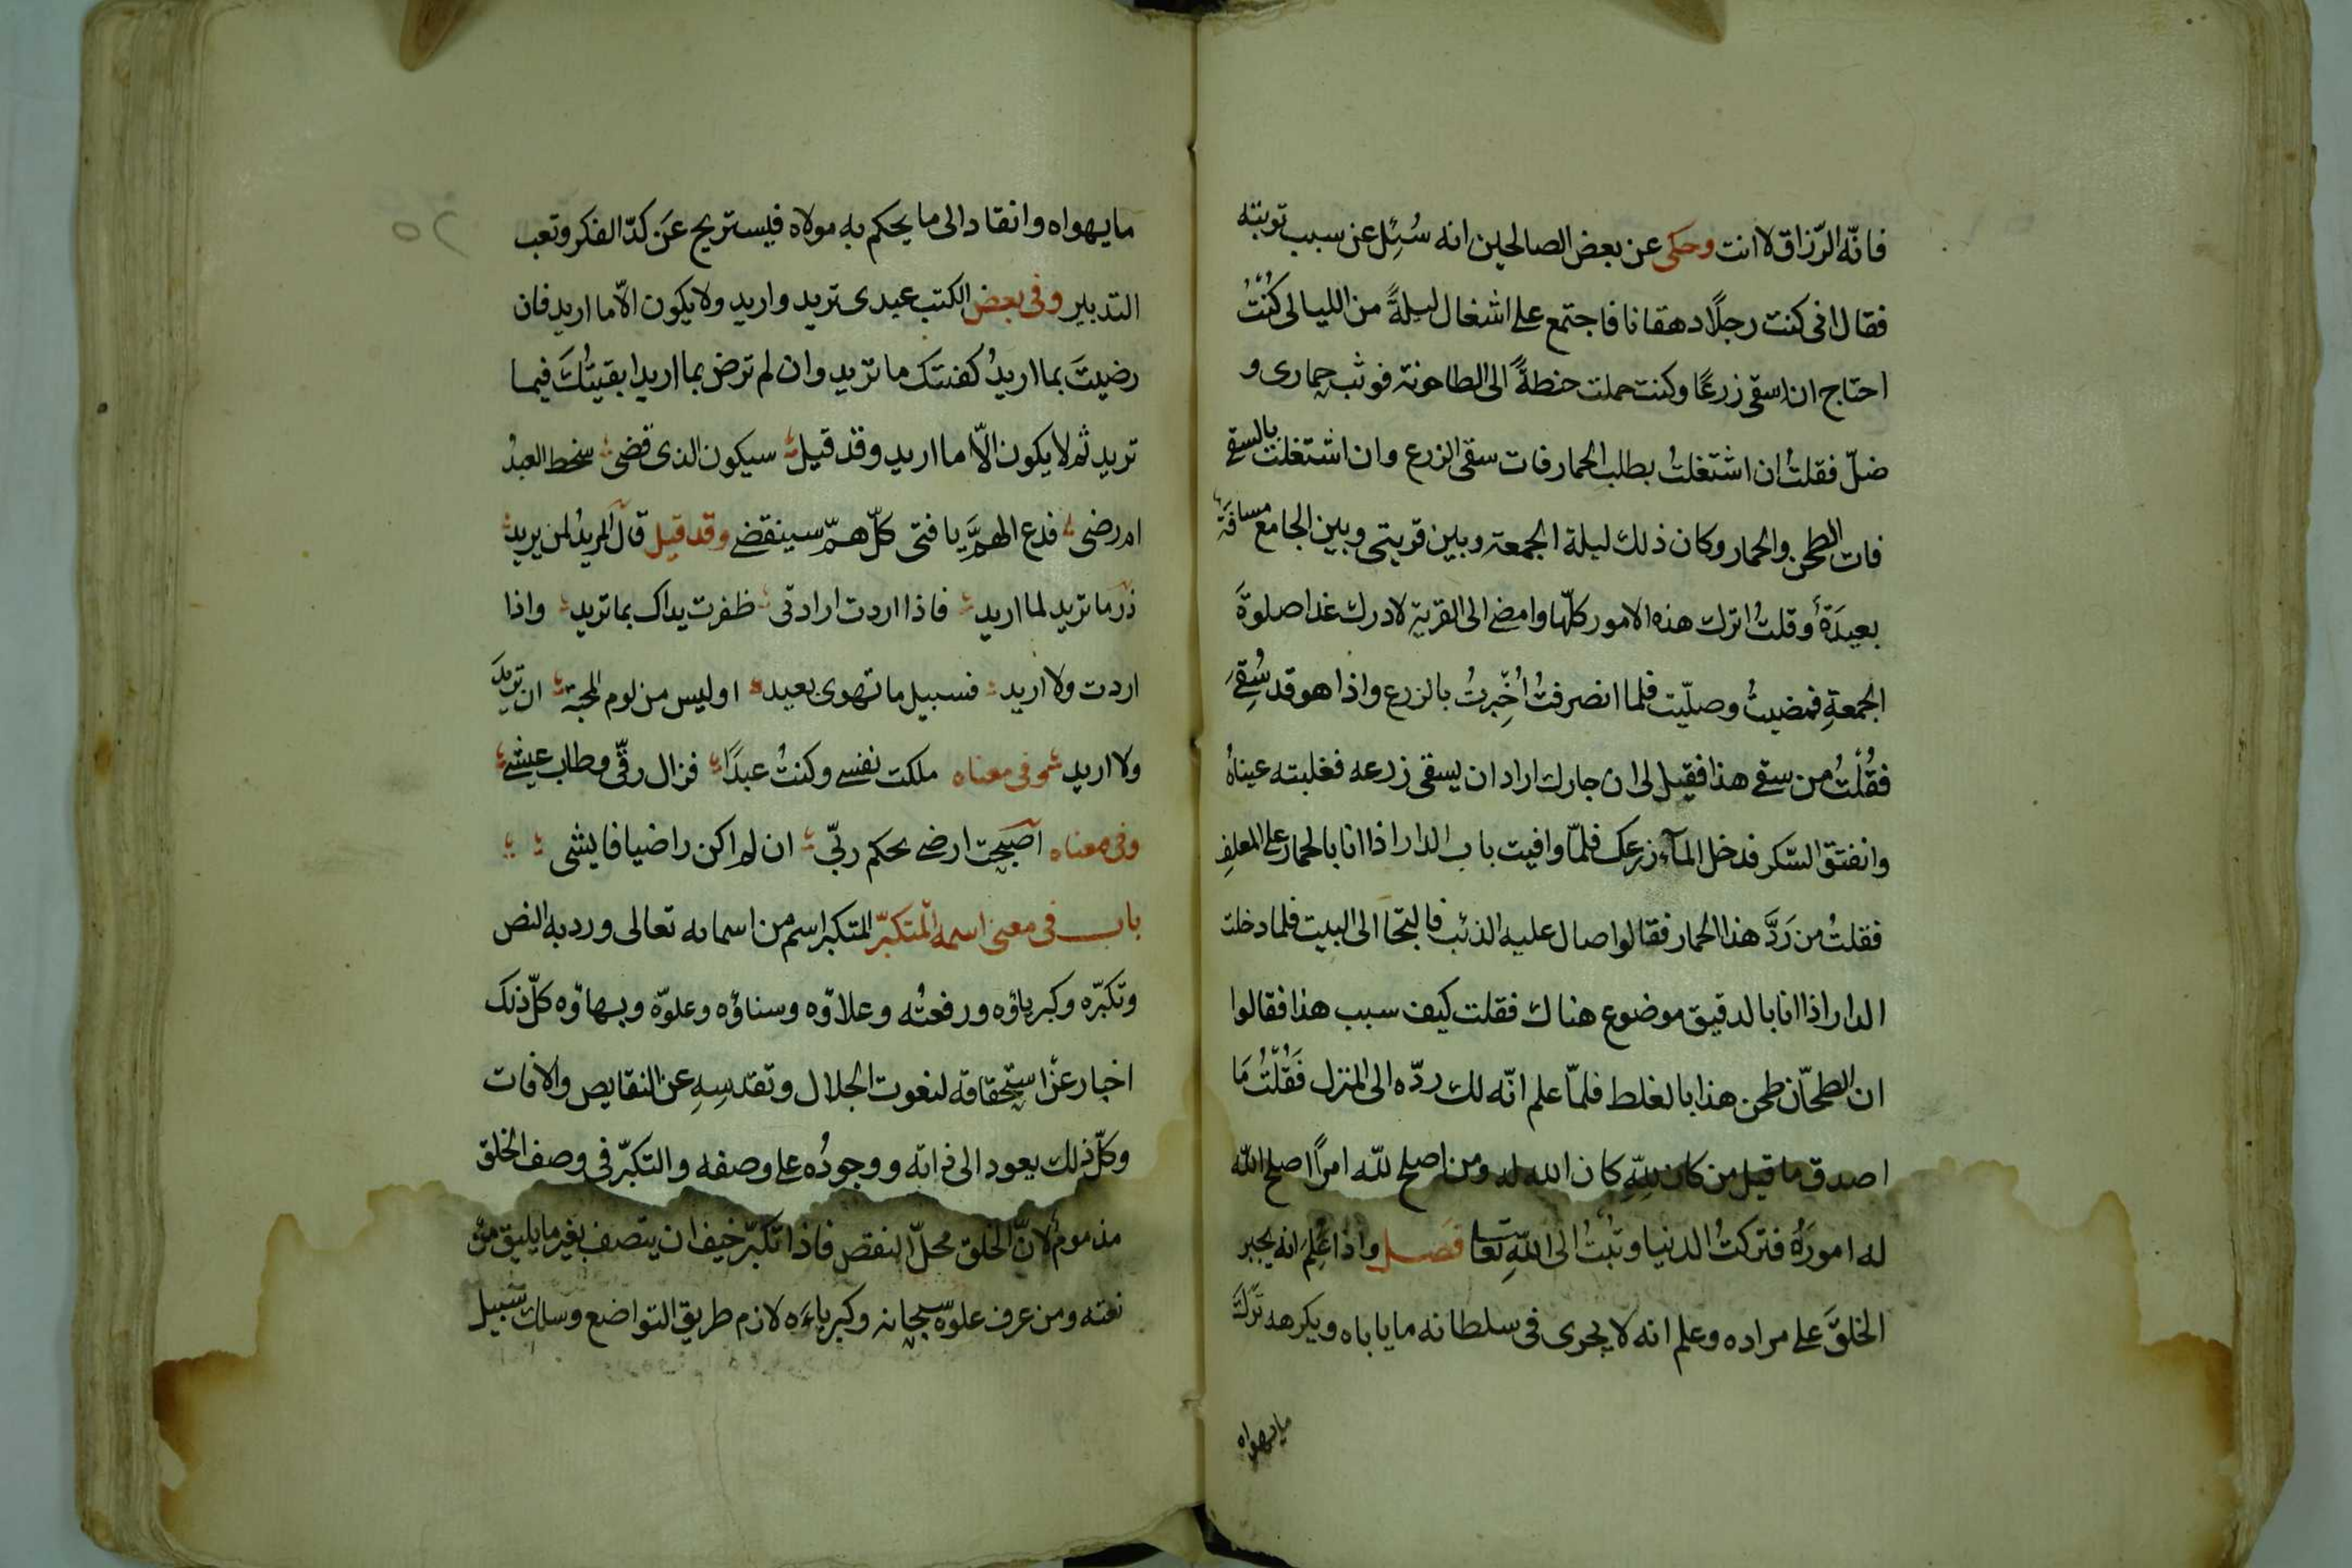 فانّه الرّزاق لا انت وحكى عن بعض الصالحين انه سُئِل عن سبب توبته
فقال انى كنت رجلًا دهقانا فاجتمع على اشغال ليلةً من الليالى كُنْتُ
احتاج ان اسقى زرعًا وكنت حملت حنطةً الى الطاحونة فوثب حمارى و
ضلّ فقلتُ ان اشتغلتُ بطلب الحمار فات سقى الزرع وان اشتغلت بالسقى
فات الطحن والحمار وكان ذلك ليلة الجمعة وبين قريتى وبين الجامع مسافة
بعيدَةٌ وقلتُ اترك هذه الامور كلّها وامضى الى القرية لادرك غدا صلوةَ
الجمعةِ فمضيتُ وصلّيت فلما انصرفتُ اُخْبِرتُ بالزرع واذا هو قد سُقِىَ
فقُلْتُ من سقى هذا فقيل لى ان جارك اراد ان يسقى زرعه فغلبته عيناهُ
وانفتق السّكر فدخل المآء زرعك فلمّا وافيت باب الدار اذا انا بالحمار على المعلفِ
فقلتُ من رَدَّ هذا الحمار فقالوا صال عليه الذئب فالتجَأ الى البيت فلما دخلت
الدار اذا انا بالدقيق موضوع هناك فقلت كيف سبب هذا فقالوا
ان الطحّان طحن هذا بالغلط فلمّا علم انّه لك ردّه الى المنزل فَقُلْتُ مَا
اصدق ما قيل من كان للّهِ كان الله له ومن اصلح للّه امرًا اصلح الله
له امورَهُ فتركتُ الدنيا وتُبْتُ الى اللّهِ تعالى فصل واذا عُلِمَ انه يجبر
الخلقَ على مراده وعلم انه لا يجرى فى سلطانه ما ياباه ويكرهه تَرَكَ
مايهواه
ما يهواه وانقاد الى ما يحكم به مولاه فيستريح عَن كدّ الفكر وتعب
التدبير وفى بعض الكتب عبدى تريد واريد ولا يكون الّا ما اريد فان
رضيتَ بما اريدُ كفيتك ما تريد وان لم ترض بما اريد ابقيتُكَ فيما
تريد ثم لا يكون الّا ما اريد وقد قيل سيكون الذى قضى سخط العبدُ
ام رضى فدع الهمَّ يا فتى كلّ همّ سينقضى وقد قيل قال المريدُ لمن يريد
ذر ما تريد لما اريد فاذا اردت ارادتى ظفرت يداك بما تريد واذا
اردت ولا اريد فسبيل ما تهوى بعيد او ليس من لوم المحبة ان تريدَ
ولا اريد وفى معناه ملكت نفسى وكنتُ عبدًا فزال رقّى وطاب عيشى
وفى معناه اصبحت ارضى بحكم ربّى ان لم اكن راضيا فايشى
باب فى معنى اسمه المتكبّر المتكبر اسم من اسمائه تعالى ورد به النص
وتكبّره وكبرياؤه ورفعتُه وعلاؤه وسناؤه وعلوّه وبهاؤه كلّ ذلك
اخبار عن استحقاقه لنعوت الجلال وتقدسِهِ عن النقايص والافات
وكلّ ذلك يعود الى ذاته ووجودُه على وصفه والتكبّر فى وصف الخلق
مذموم لانّ الخلق محلّ النقص فاذا تكبّر خيف ان يتصف بغير ما يليق من
نعته ومن عرف علوه سبحانه وكبرياءَه لازم طريق التواضع وسلك سبيل